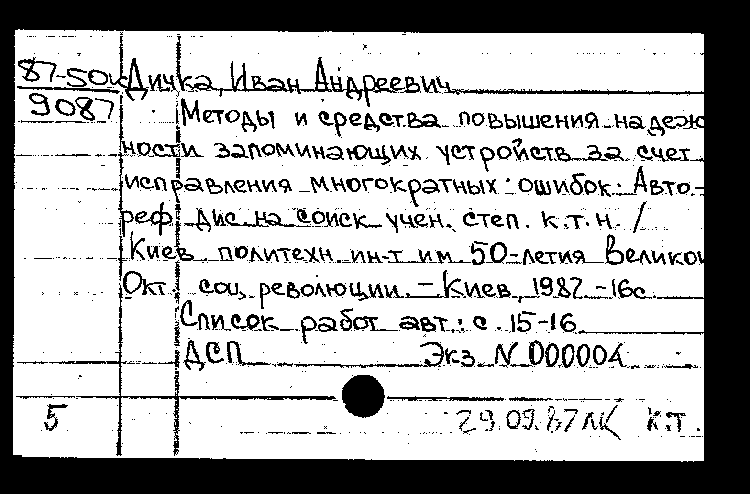 87-50к Дичка, Иван Андреевич
9087 Методы и средства повышения надеж
ности запоминающих устройств за счет
исправления многократных ошибок: Авто-
реф. дис. на соиск. учен. степ. к.т.н. /
Киев. политехн. ин-т им. 50-летия Великой
Окт. соц. революции. - Киев, 1987. - 16с.
Список работ авт.: с. 15-16.
ДСП Экз. N 000004
5 29.09.87 К.Т.